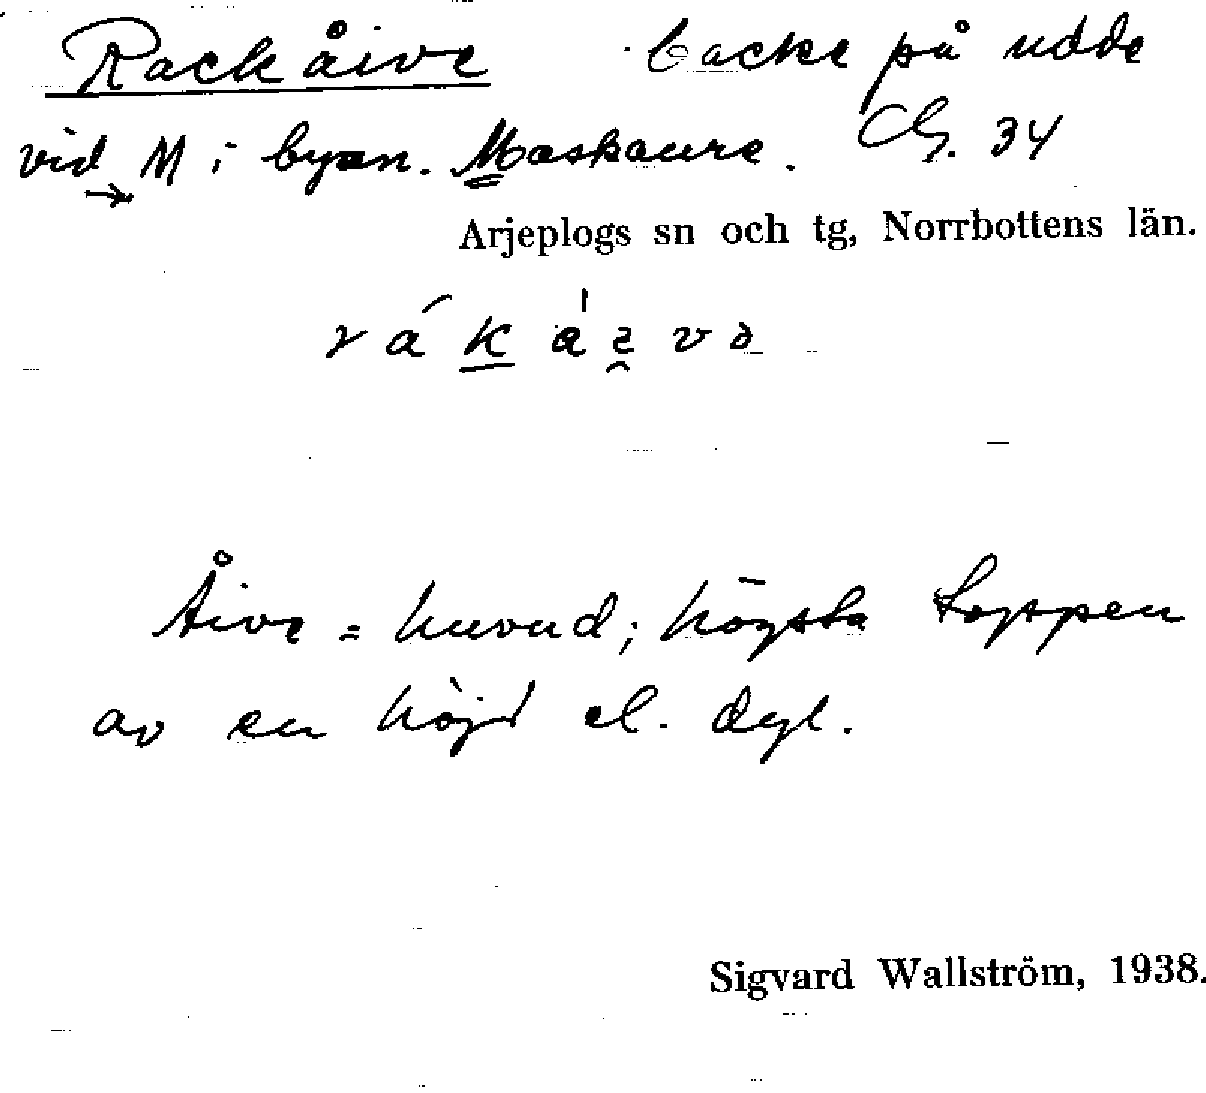 Rackåive backe på udde
vid M i byn. Maskaure. Cg. 34
Arjeplogs sn och tg, Norrbottens län.
Åive = huvud; högsta toppen
av en höjd el. dyl.
Sigvard Wallström, 1938.